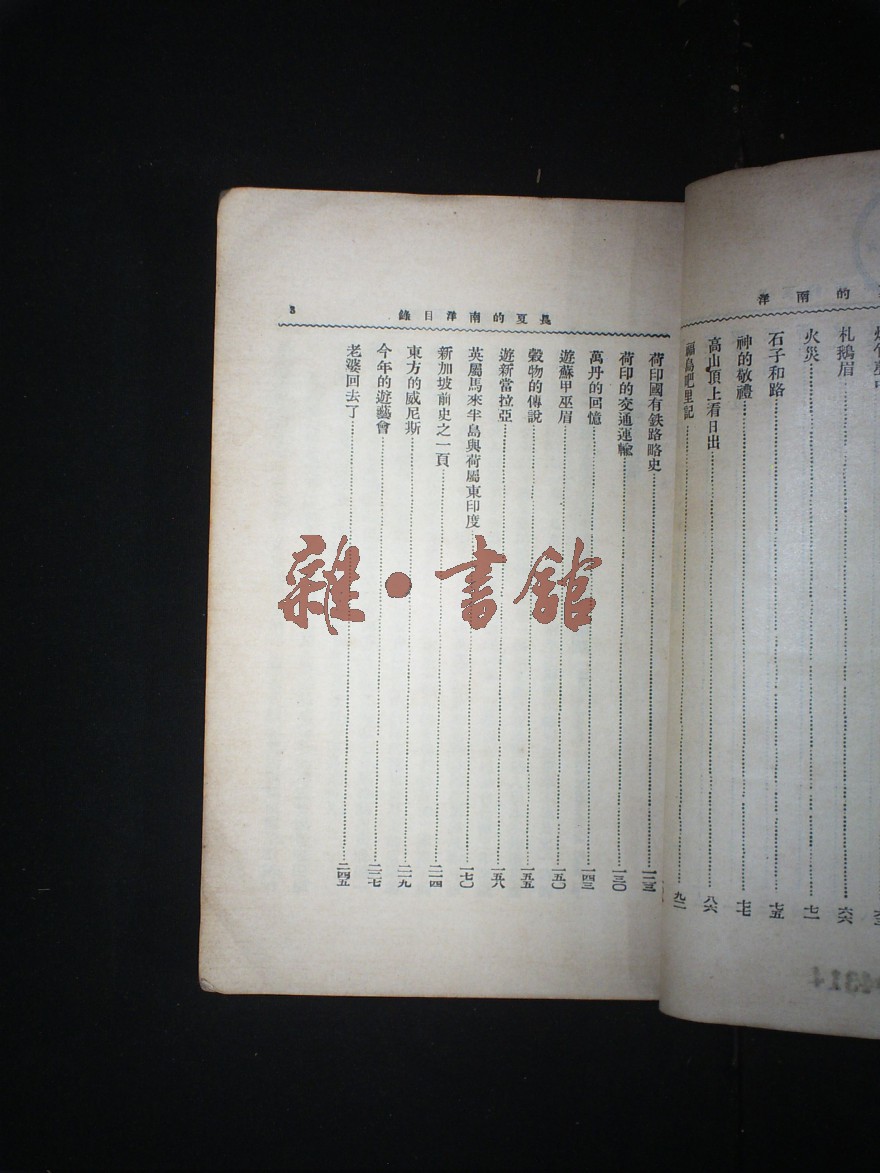 的南洋
札鵝眉……六六
火災……七一
石子和路……七五
神的敬禮……七七
高山頂上看日出……八六
福島吧里記……九二
長夏的南洋目錄
3
荷印國有鉄路略史……一二三
荷印的交通運輸……一三〇
萬丹的回憶……一四三
遊蘇甲巫眉……一五〇
穀物的傳說……一五五
遊新當拉亞……一五八
英屬馬來半島與荷屬東印度……一七〇
新加坡前史之一頁……二一四
東方的威尼斯……二一九
今年的遊藝會……二二七
老婆回去了……二四五
雜·書館